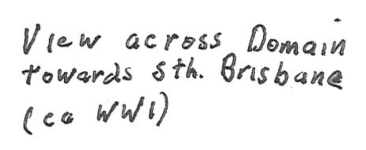 View across Domain
towards Sth. Brisbane
(ca WW1)